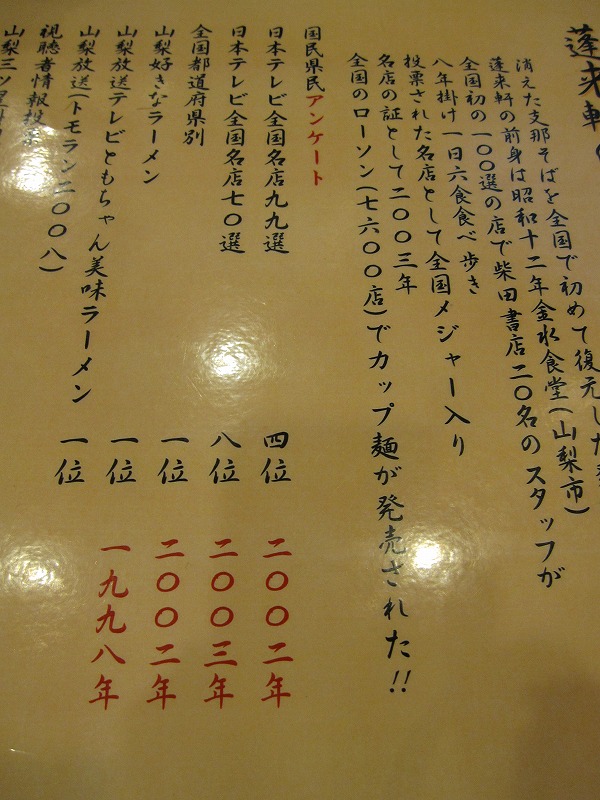 蓬来軒
消えた支那そばを全国で初めて復元した
蓬来軒の前身は昭和十二年金水食堂(山梨市)
全国初の一〇〇選の店で柴田書店二〇名のスタッフが
八年掛け一日六食食べ歩き
投票された名店として全国メジャー入り
名店の証として二〇〇三年
全国のローソン(七六〇〇店)でカップ麺が発売された!!
国民県民アンケート
日本テレビ全国名店九九選 四位 二〇〇二年
日本テレビ全国名店七〇選 八位 二〇〇三年
全国都道府県別 一位 二〇〇二年
山梨好きなラーメン 一位 一九九八年
山梨放送テレビともちゃん美味ラーメン 一位
山梨放送(トモラン二〇〇八)
視聴者情報投票
山梨三ツ星